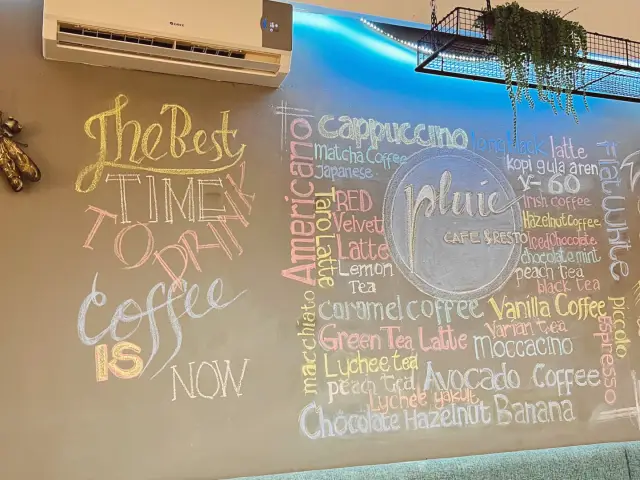 The Best
TIME
TO DRINK
Coffee
IS
NOW
Americano
cappuccino
long black
latte
Matcha Coffee
Japanese
kopi gula aren
V-60
Flat white
Taro Latte
RED
Velvet
Latte
Lemon
Tea
pluie
CAFE & RESTO
Irish coffee
Hazelnut Coffee
Iced Chocolate
chocolate mint
peach tea
black tea
macchiato
caramel coffee
Vanilla Coffee
piccolo
Espresso
Green Tea Latte
Varian tea
Moccacino
Lychee tea
peach tea
Avocado Coffee
Lychee yakult
Chocolate Hazelnut Banana